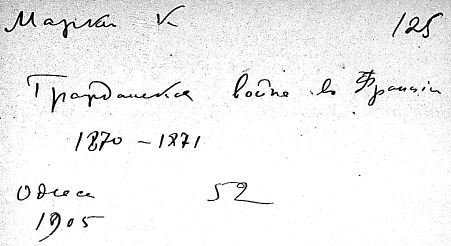 Маркс К. 125
Гражданская война во Франціи
1870 - 1871
Одесса 52
1905